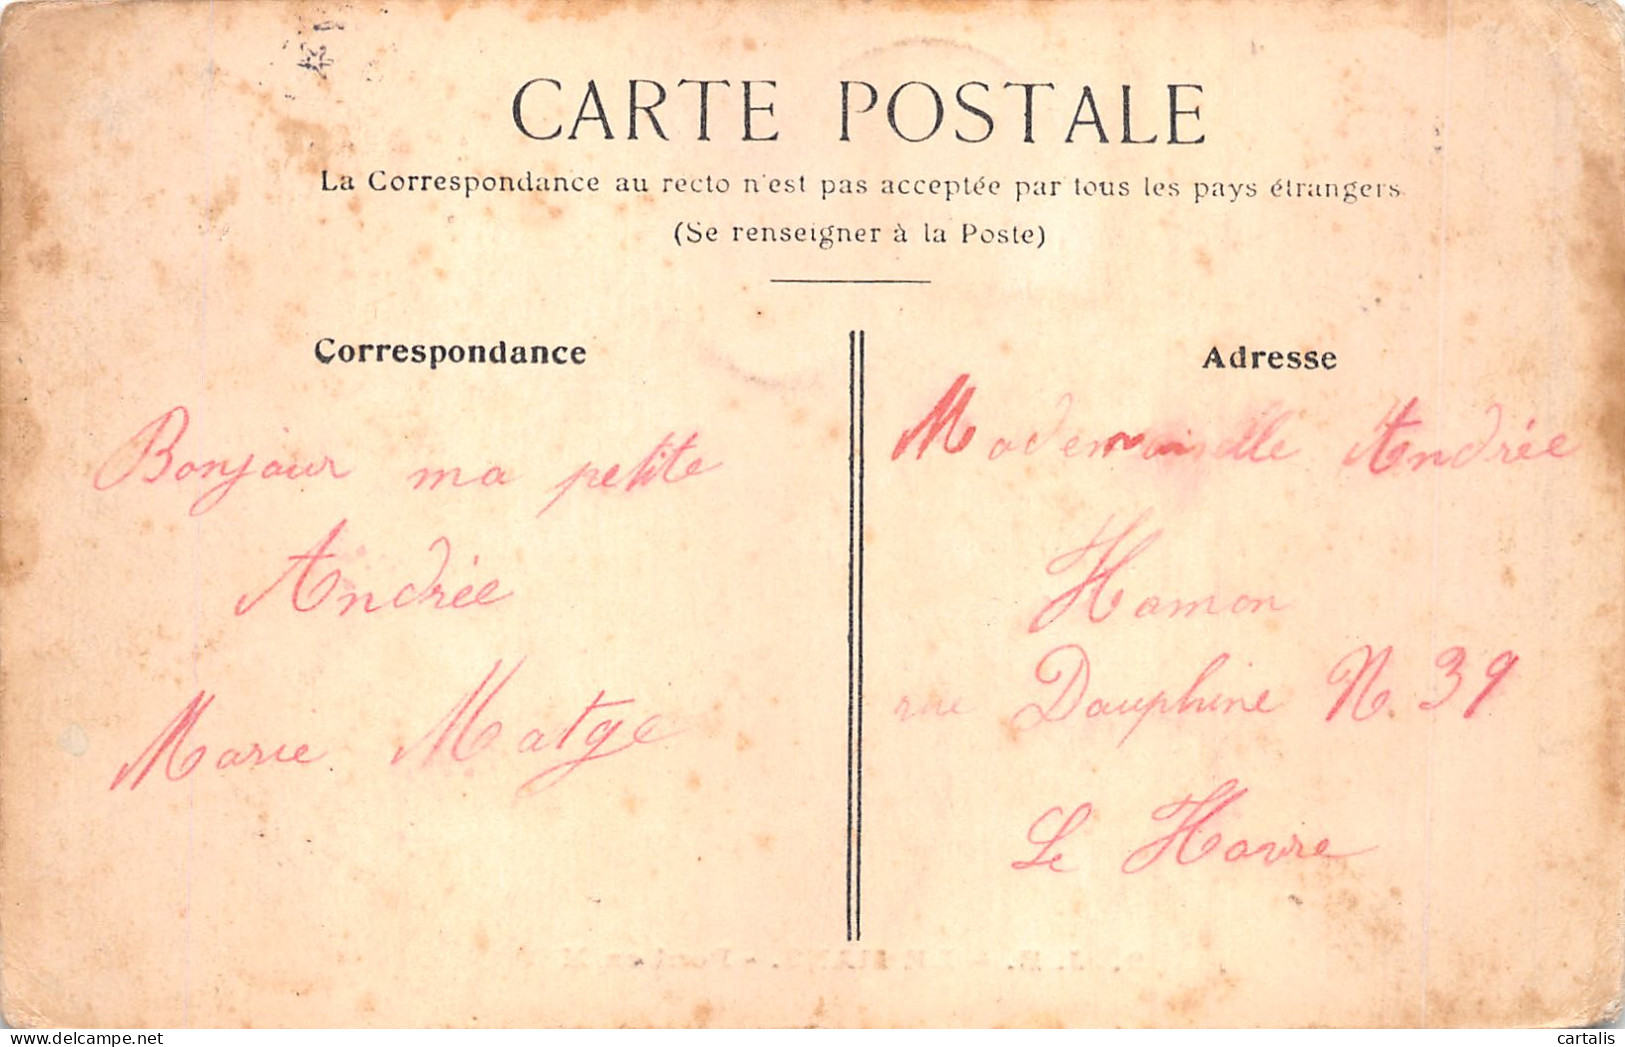 CARTE POSTALE
La Correspondance au recto n'est pas acceptée par tous les pays étrangers.
(Se renseigner à la Poste)
Correspondance
Bonjour ma petite
Andrée
Marie Matge
Adresse
Mademoiselle Andrée
Hamon
rue Dauphine N. 39
Le Havre
cartalis